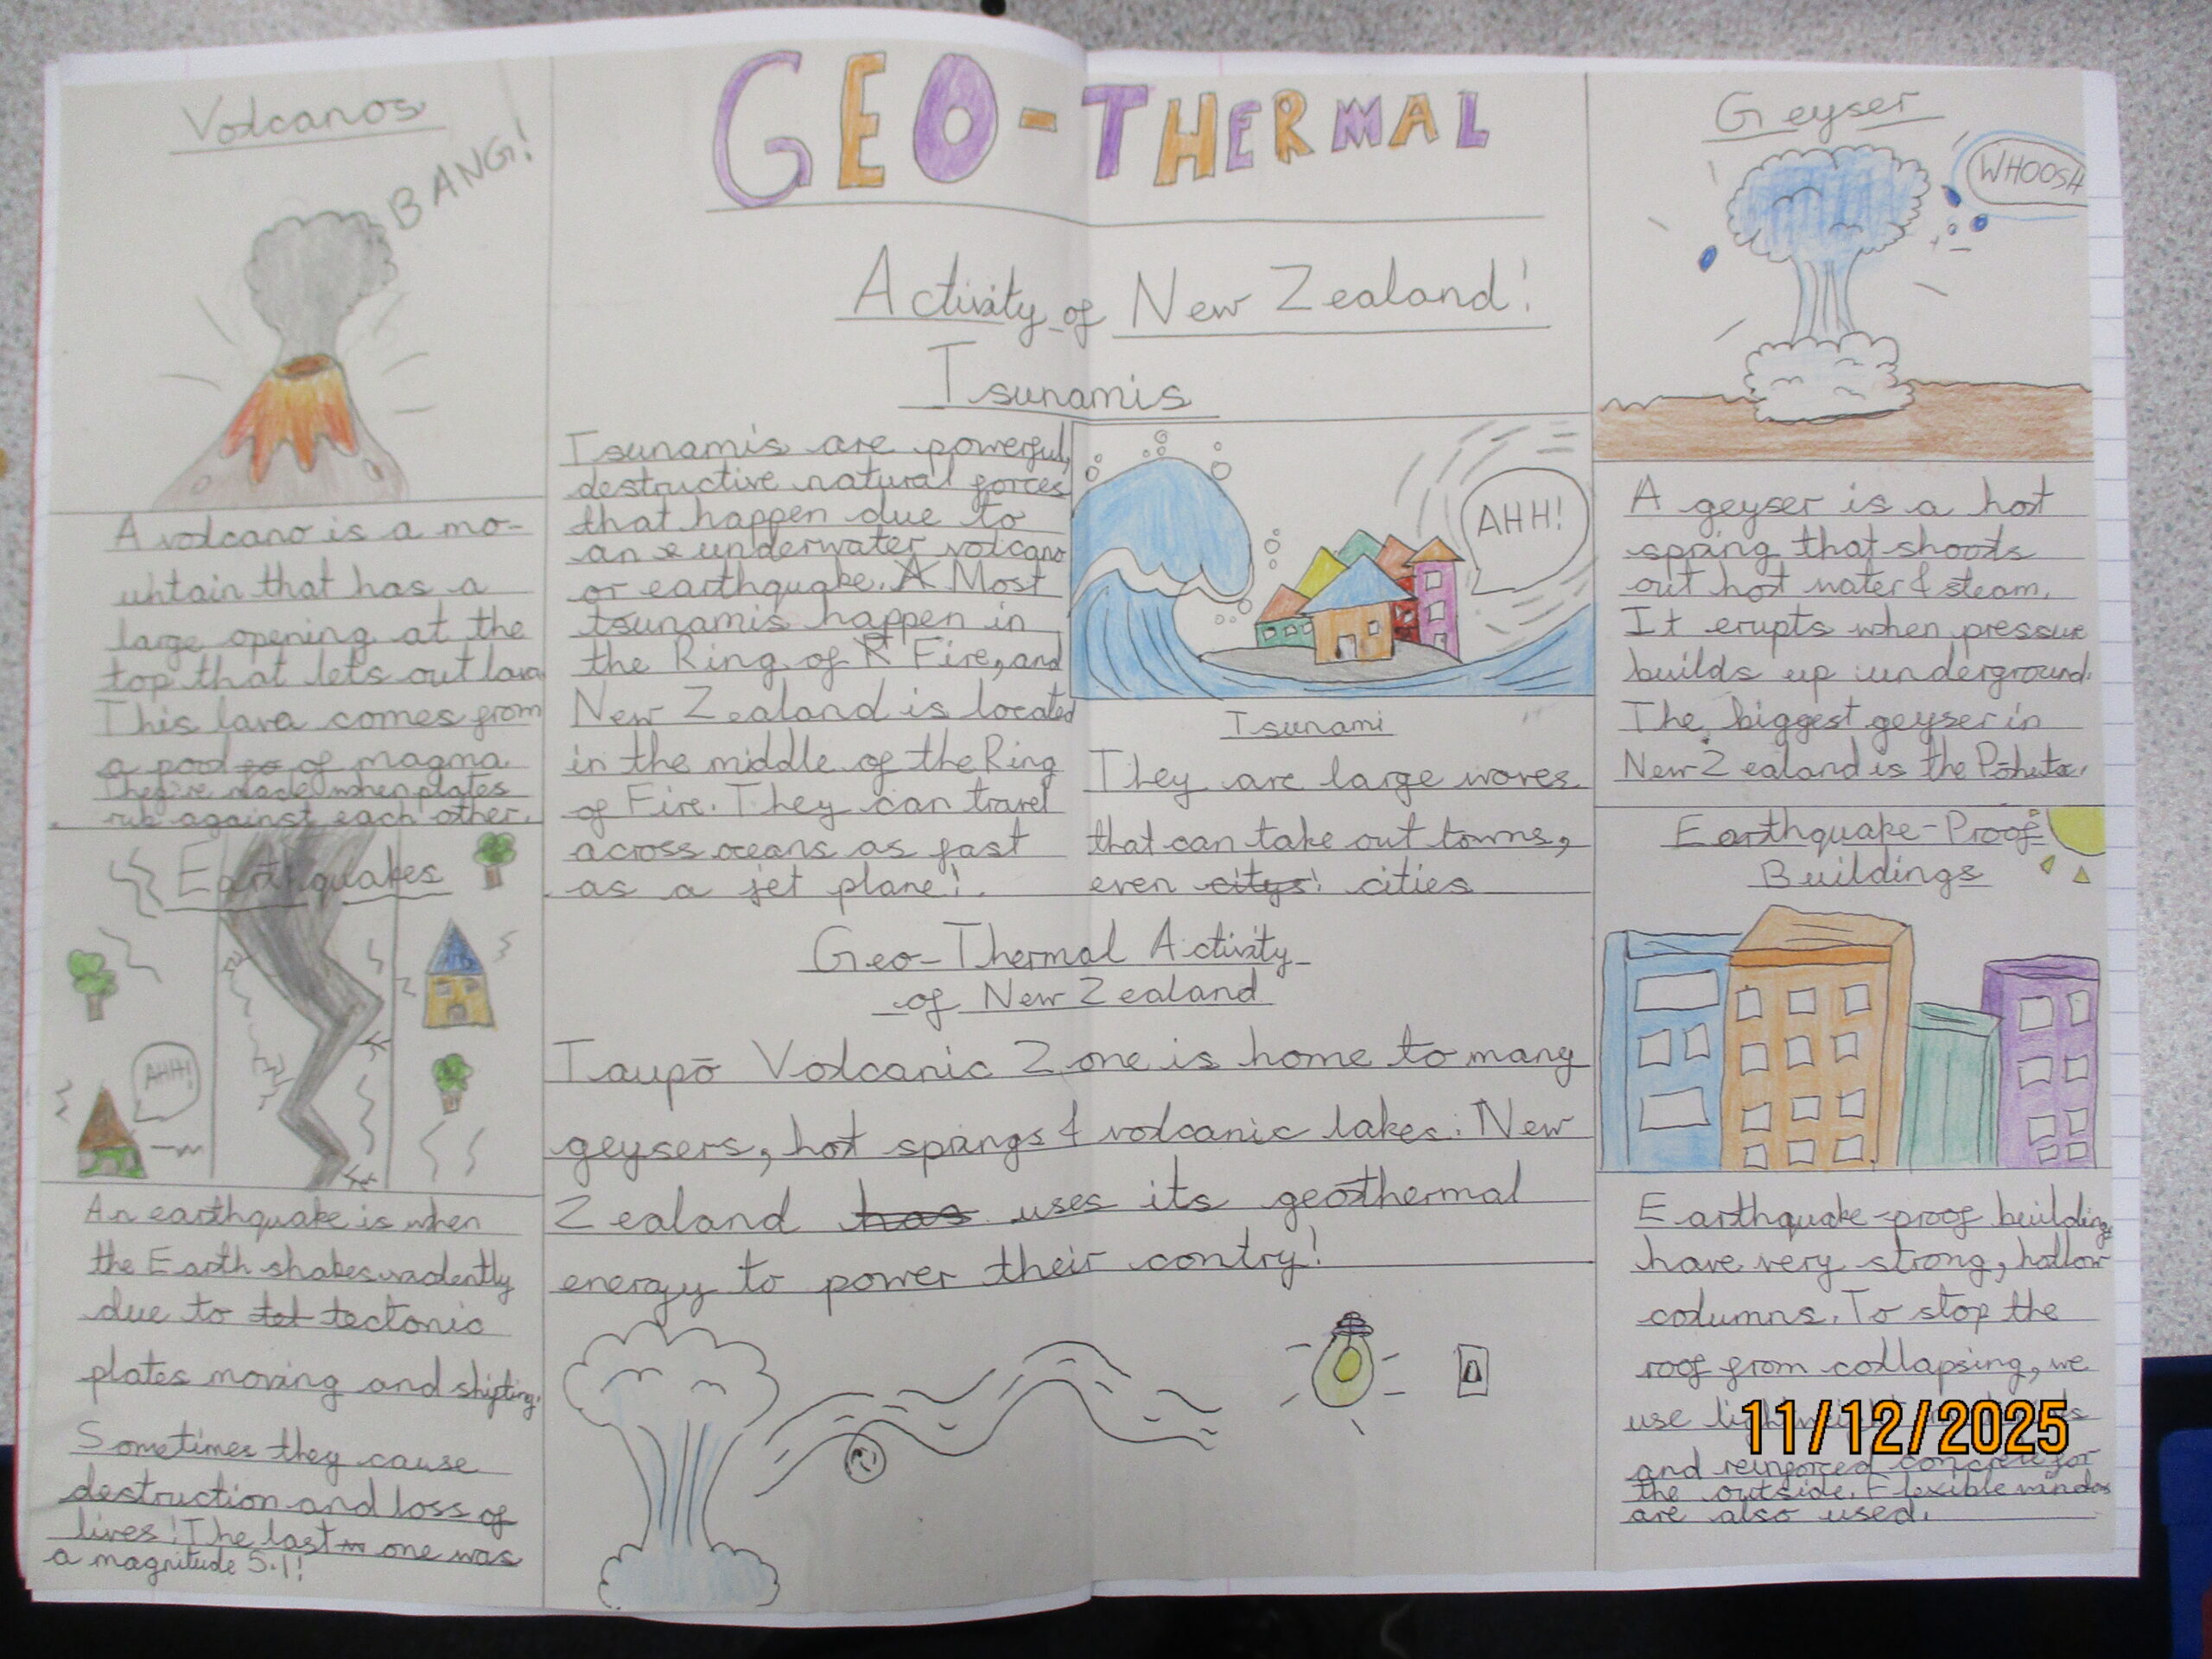 Volcanos
BANG!
A volcano is a mo-
untain that has a
large opening at the
top that lets out lava.
This lava comes from
a pool go of magma
They're made when plates
rub against each other.
Earthquakes
AHH!
An earthquake is when
the Earth shakes violently
due to tet tectonic
plates moving and shifting.
Sometimes they cause
destruction and loss of
lives! The last one was
a magnitude 5.1!
GEO-THERMAL
Activity of New Zealand!
Tsunamis
Tsunamis are powerful,
destructive natural forces
that happen due to
an underwater volcano
or earthquake. A Most
tsunamis happen in
the Ring of R Fire, and
New Zealand is located
in the middle of the Ring
of Fire. They can travel
across oceans as fast
as a jet plane!
AHH!
Tsunami
They are large waves
that can take out towns,
even citys! cities
Geo-Thermal Activity
of New Zealand
Taupō Volcanic Zone is home to many
geysers, hot springs & volcanic lakes. New
Zealand has uses its geothermal
energy to power their contry!
Geyser
WHOOSH
A geyser is a hot
spring that shoots
out hot water & steam.
It erupts when pressure
builds up underground.
The biggest geyser in
New Zealand is the Pōhutu.
Earthquake-Proof
Buildings
Earthquake-proof buildings
have very strong, hollow
columns. To stop the
roof from collapsing, we
use
11/12/2025
and reinforced concrete for
the outside. Flexible windows
are also used.